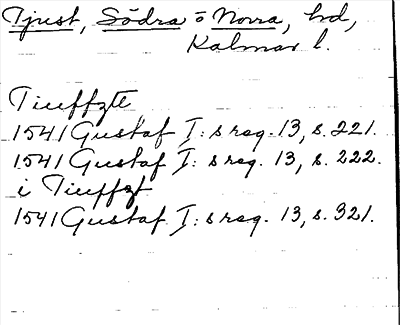 Tjust, Södra o Norra, hd,
Kalmar l.
Tiuffzte
1541 Gustaf I: s reg. 13, s. 221.
1541 Gustaf I: s reg. 13, s. 222.
i Tiuffzt
1541 Gustaf I: s reg. 13, s. 321.